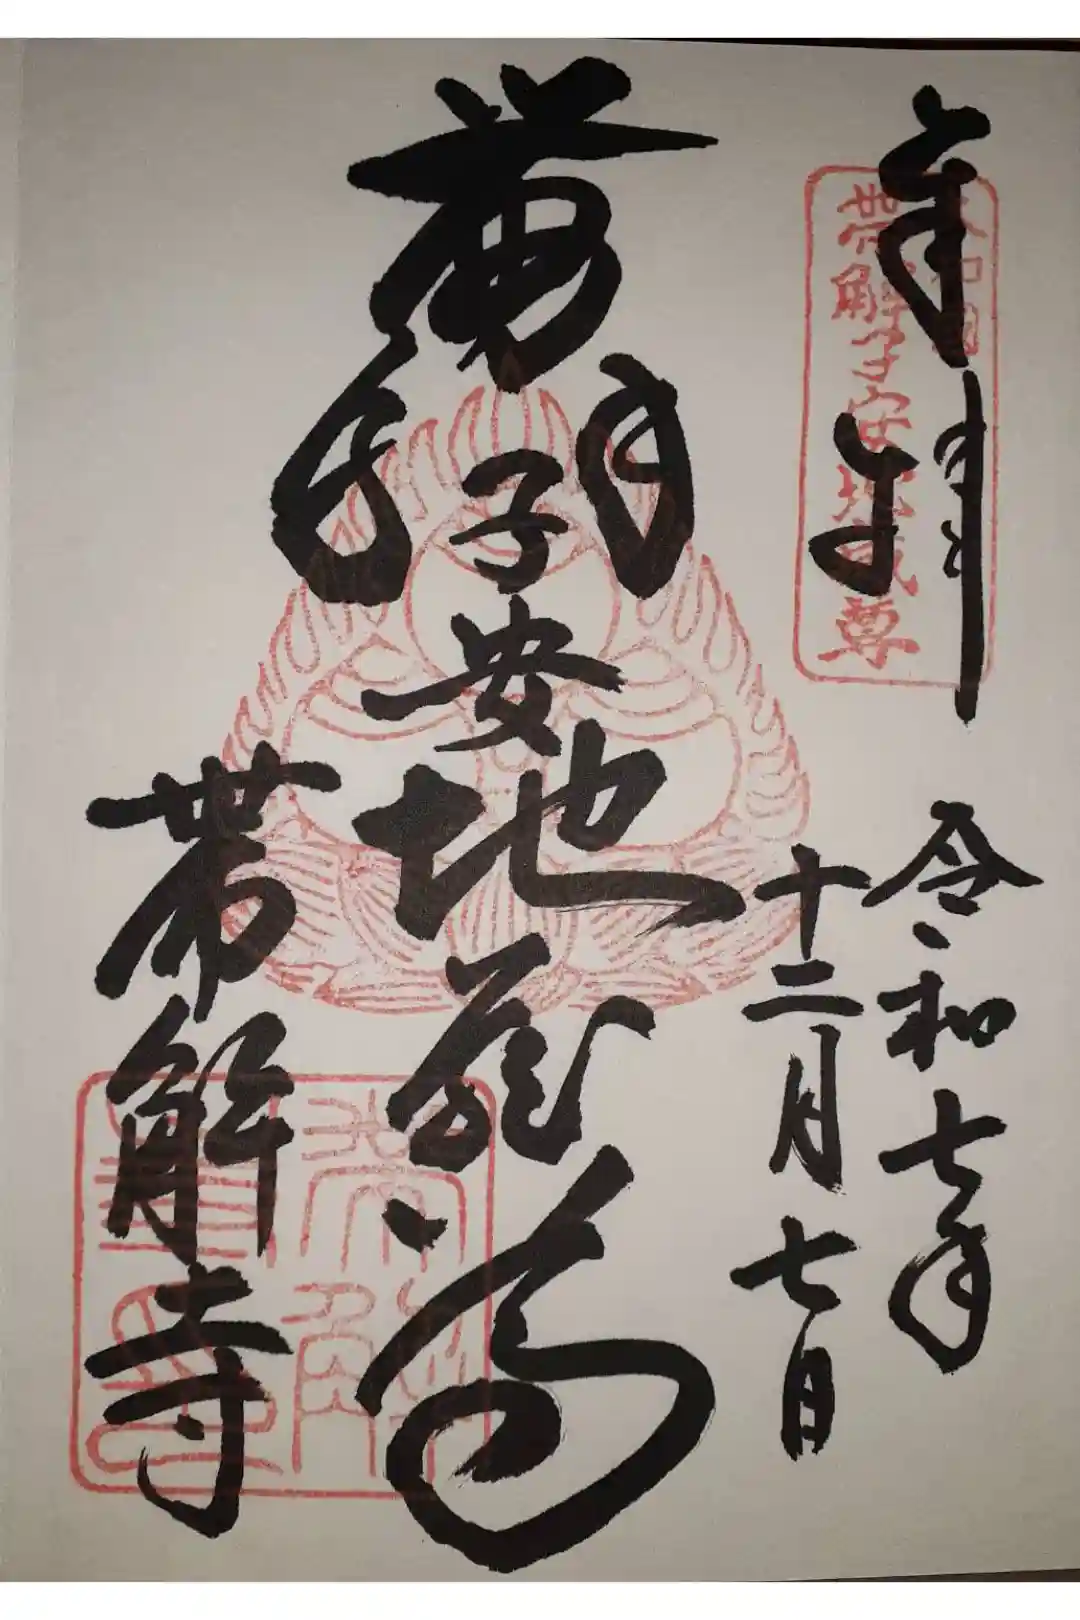 奉拝
令和七年
十二月七日
帯解子安地蔵尊
帯解
子安地蔵尊
帯解寺